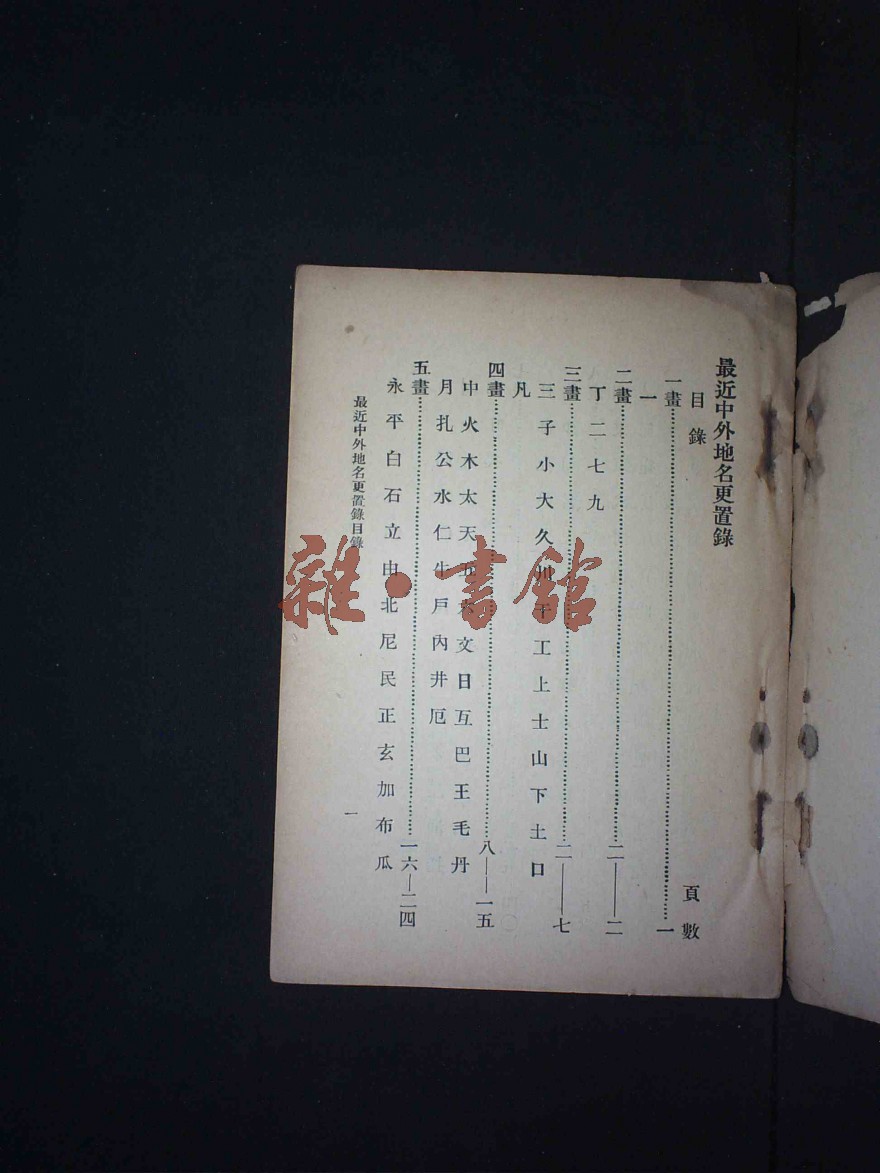 最近中外地名更置錄
目錄
頁數
一畫……一
一
二畫……二——二
丁二七九
三畫……二——七
三子小大久卅干工上士山下土口
凡
四畫……八——一五
中火木太天五六文日互巴王毛丹
月扎公水仁牛戶內井厄
五畫……一六—二四
永平白石立由北尼民正玄加布瓜
最近中外地名更置錄目錄
一
雜·書館